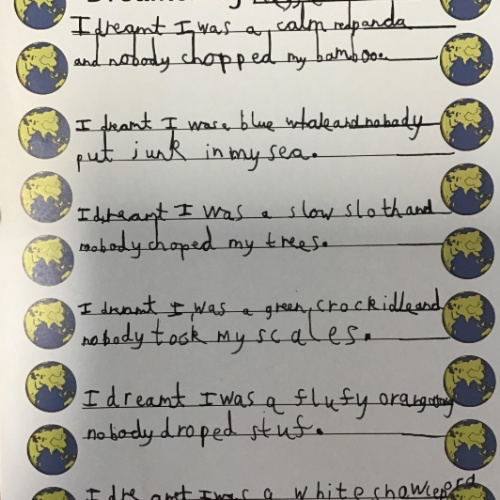 I dreamt I was a calm redpanda
and nobody chopped my bamboo.
I dreamt I was a blue whale and nobody
put junk in my sea.
I dreamt I was a slow sloth and
nobody choped my trees.
I dreamt I was a green crockidle and
nobody took my scales.
I dreamt I was a flufy
nobody droped stuf.
I dreamt I was a white